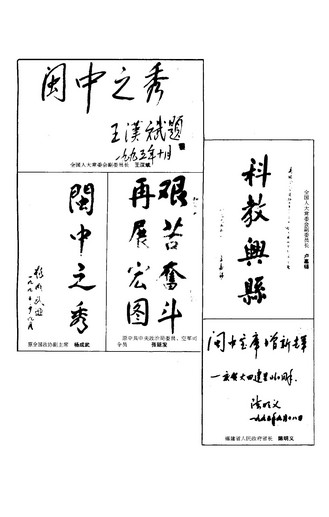 闽中之秀
王漢斌題
一九九五年十月
全国人大常委会副委员长 王汉斌
科教興縣
全国人大常委会副委员长 卢嘉锡
艰苦奋斗
再展宏图
原中共中央政治局委员、空军司
令员 张廷发
閩中之秀
原全国政协副主席 杨成武
闽中宝库增新辉
—贺大田建县460周年
陈明义
福建省人民政府省长 陈明义